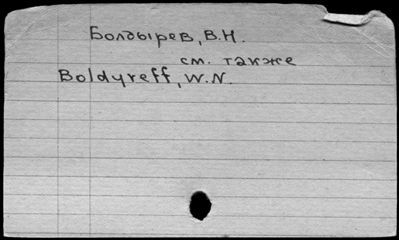 Болдырев, В.Н.
см. также
Boldyreff, W.N.